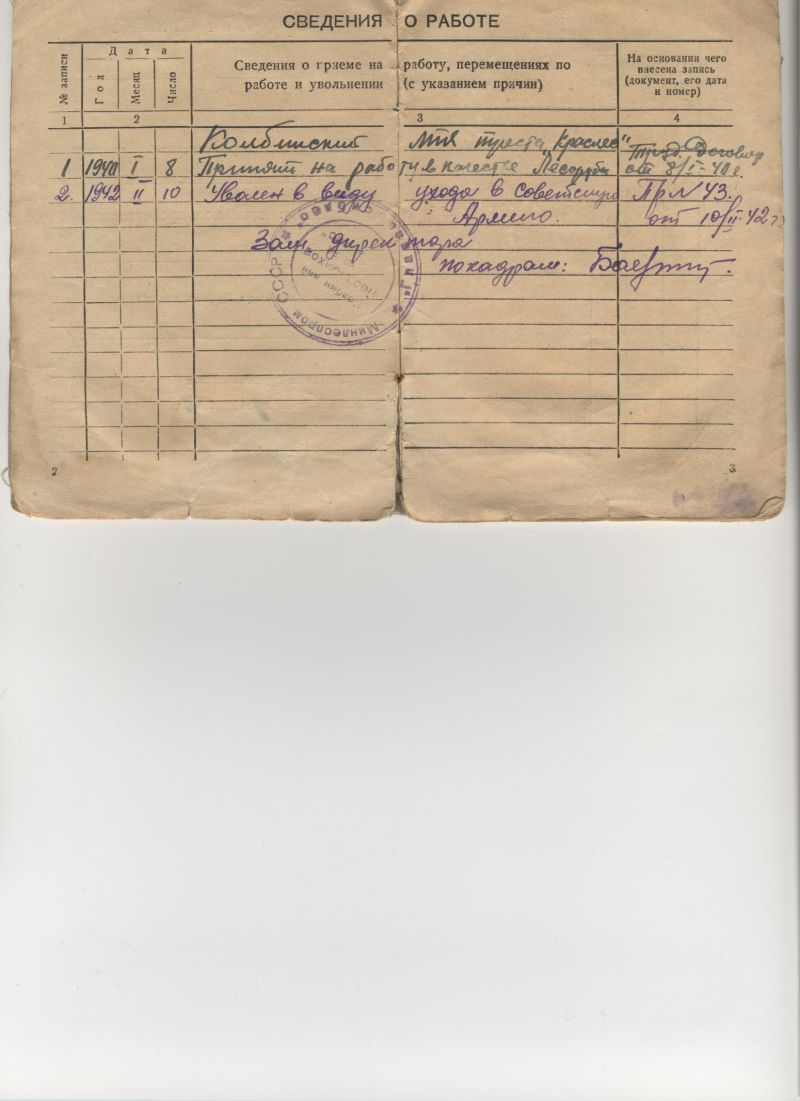 СВЕДЕНИЯ О РАБОТЕ
№ записи
Дата
Год
Месяц
Число
Сведения о приеме на работу, перемещениях по
работе и увольнении (с указанием причин)
На основании чего
внесена запись
(документ, его дата
и номер)
1 2 3 4
Колбинский МЛП треста "Краслес"
Труд. Договор
1 194 I 8 Принят на работу в качестве Лесоруба от 8/I-41г.
2. 1942 II 10 Уволен в виду ухода в советскую Пр N 43.
Армию. от 10/II-42г.
Зам директора
по кадрам:
Минлеспром СССР
2 3